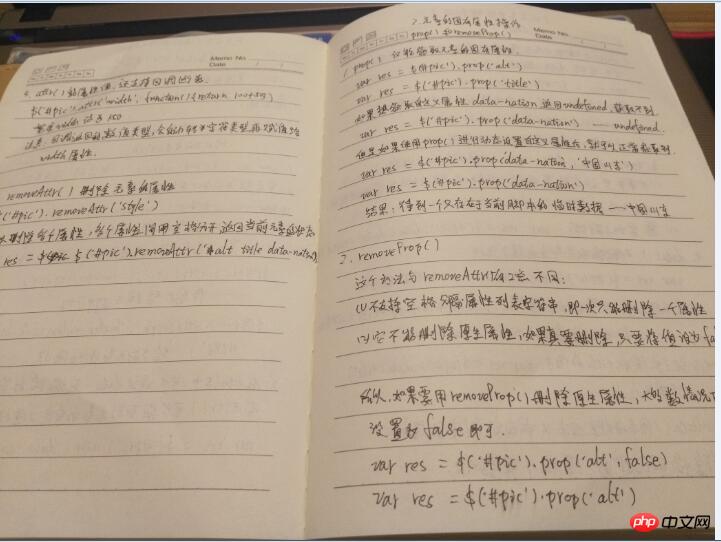 Memo No.
Date
4. attr()的属性值,还支持回调函数
$('#pic').attr('width', function(){return 100+50})
width 属性
removeAttr() 删除元素的属性
('#pic').removeAttr('style')
删除多个属性,多个属性间用空格分开 返回当前元素的状态
res = $('#pic').removeAttr('alt title data-nation
2. 元素的固有属性操作
prop()和removeProp()
Memo No.
Date
1. prop() 获取元素的固有属性
var res = $('#pic').prop('alt')
var res = $('#pic').prop('title')
如果想获取自定义属性 data-nation 返回undefined 获取不到
var res = $('#pic').prop('data-nation') — undefined
但是如果使用prop()进行动态设置自定义属性后,就可以正常获取到
var res = $('#pic').prop(data-nation, '中国山东')
var res = $('#pic').prop('data-nation')
结果:得到一个仅存在于当前脚本的临时数据 — 中国山东
2. removeProp()
这个方法与removeAttr()有2点不同:
(1)不支持空格分隔属性列表字符串,即一次只能删除一个属性
(2)它不能删除原生属性,如果真要删除,只要将值设为fa
所以,如果要用removeProp()删除原生属性,大多数情况
设置为false即可.
var res = $('#pic').prop('alt', false)
var res = $('#pic').prop('alt')
php 中文网